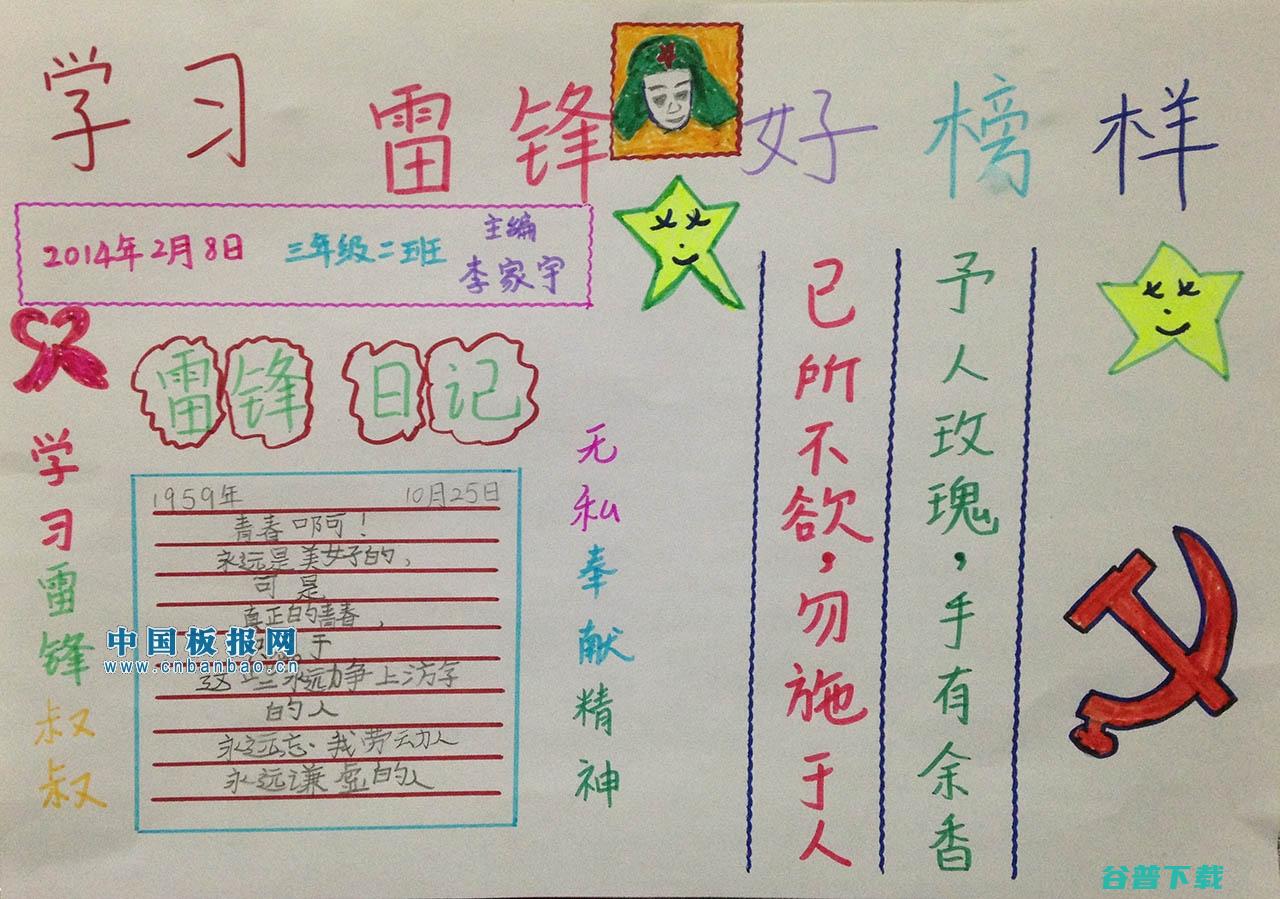 学习雷锋好榜样
2014年2月8日 三年级二班 主编 李家宇
雷锋日记
学习雷锋叔叔
1959年 10月25日
青春啊!
永远是美好的,
可是
真正的青春,
于
这些永远力争上游
的人
永远忘我劳动人
永远谦虚的人
无私奉献精神
己所不欲,勿施于人
予人玫瑰,手有余香
中国板报网
www.cnbanbao.cn
谷普下载